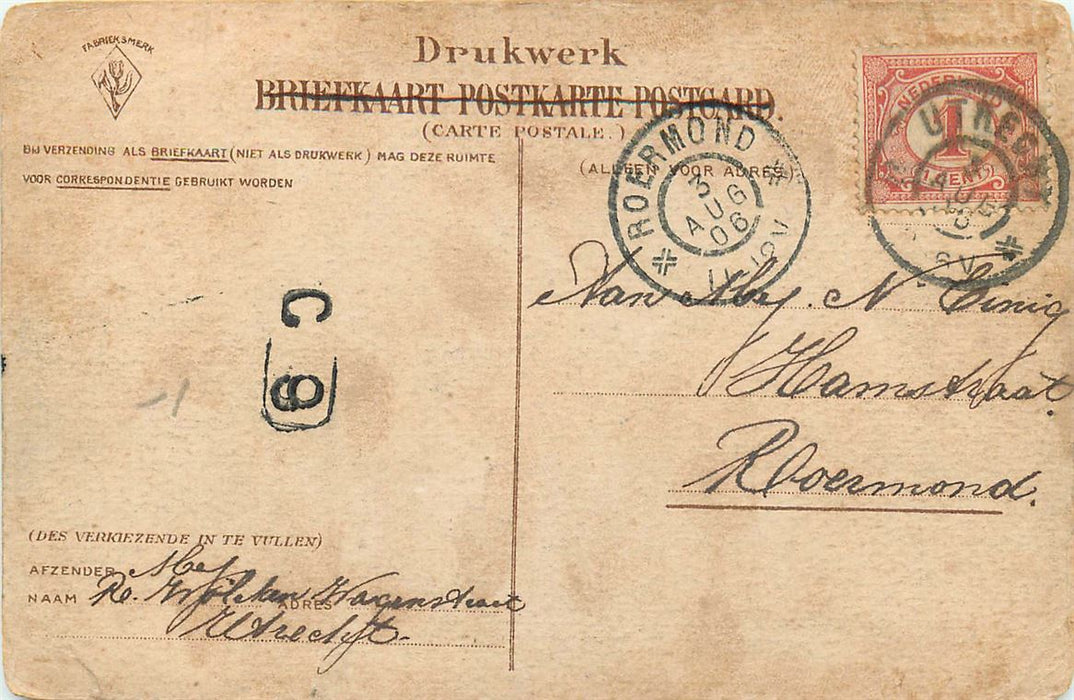 FABRIEKSMERK
Drukwerk
BRIEFKAART POSTKARTE POSTCARD.
(CARTE POSTALE.)
BIJ VERZENDING ALS BRIEFKAART (NIET ALS DRUKWERK) MAG DEZE RUIMTE
VOOR CORRESPONDENTIE GEBRUIKT WORDEN
(ALLEEN VOOR ADRES)
NEDERLAND
1
1 CENT
UTRECHT
AUG
ROERMOND
3
AUG
06
11-12V
C
9
Aan Mej. N
Hamstraat
Roermond.
(DES VERKIEZENDE IN TE VULLEN)
AFZENDER Mej
NAAM ADRES
Utrecht.